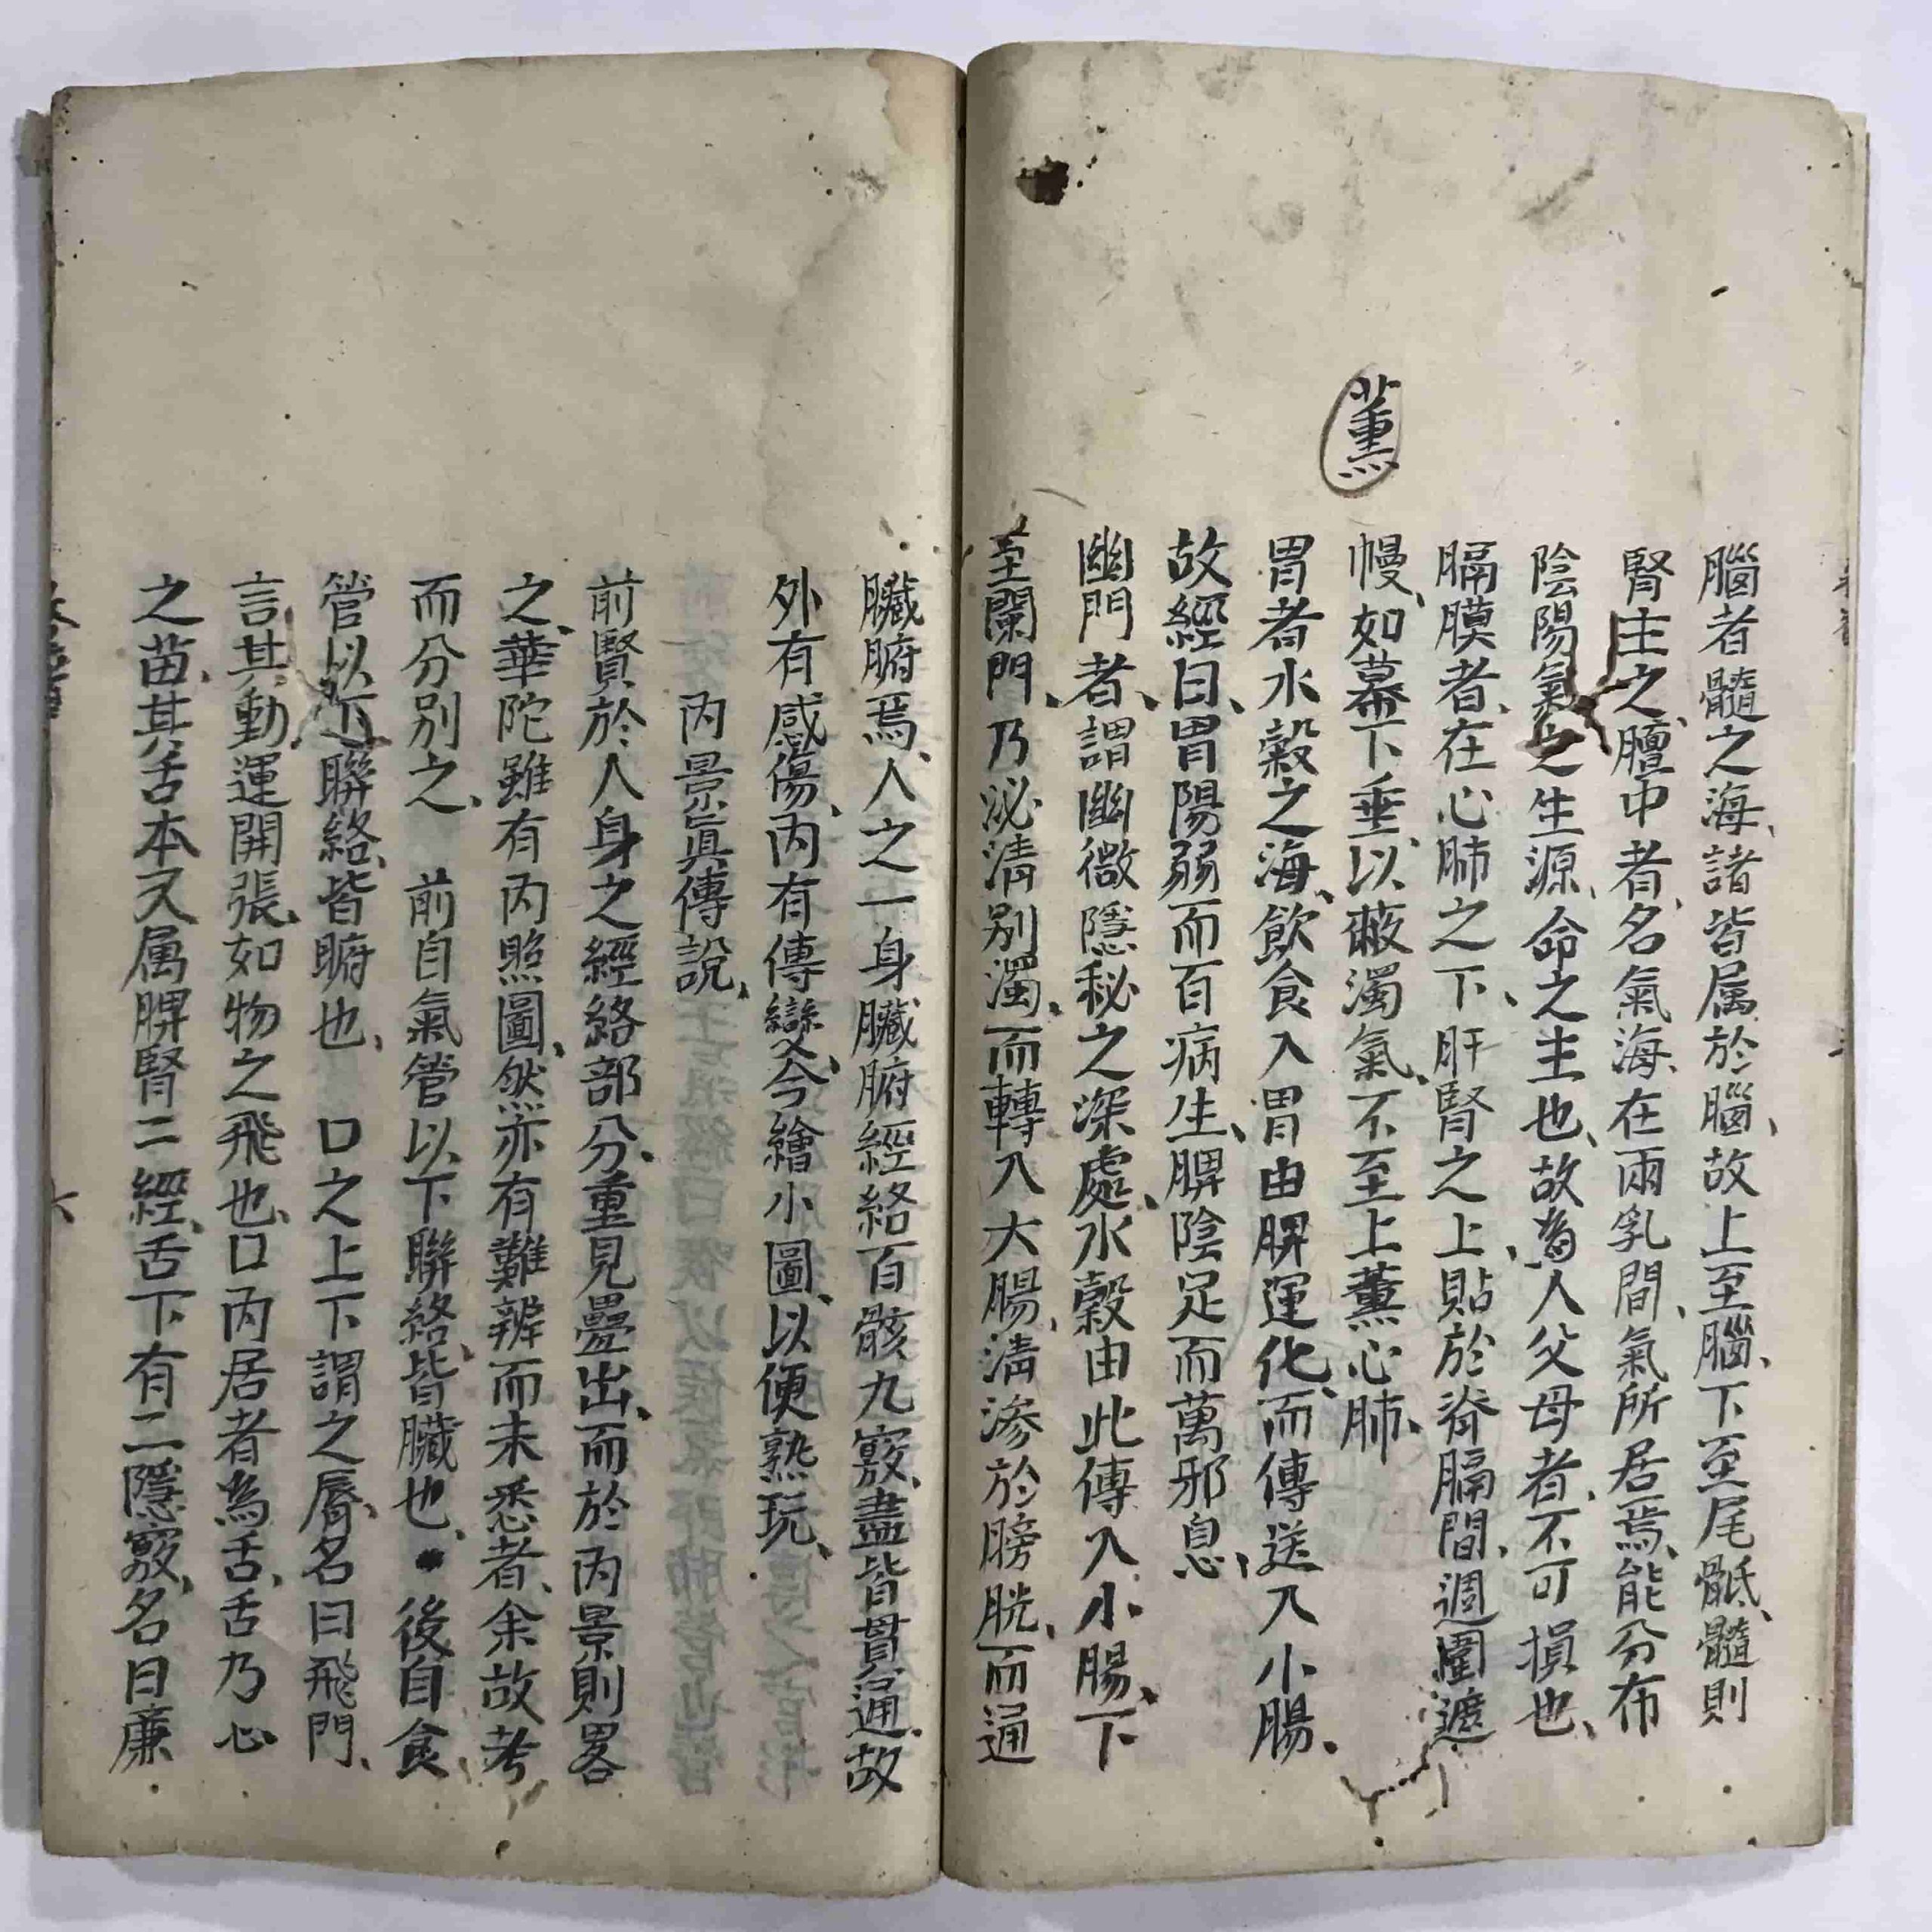 薰
腦者髓之海、諸皆属於腦、故上至腦、下至尾骶、髓則
腎主之、膻中者、名氣海、在兩乳間、氣所居焉、能分布
陰陽氣之生源、命之主也、故為人父母者、不可損也、
膈膜者、在心肺之下、肝腎之上、貼於脊膈間、週圍遮
幔、如幕下垂、以蔽濁氣、不至上薰心肺、
胃者水穀之海、飲食入胃由脾運化、而傳送入小腸、
故經曰、胃陽弱而百病生、脾陰足而萬邪息、
幽門者、謂幽微隱秘之深處、水穀由此傳入小腸、下
至闌門、乃泌清别濁、而轉入大腸、清滲於膀胱、而通
臟腑焉、人之一身臟腑經絡百骸九竅、盡皆貫通、故
外有感傷、内有傳變、今繪小圖、以便熟玩、
内景真傳說、
前賢於人身之經絡部分、重見疊出、而於内景則畧
之、華陀雖有内照圖、然亦有難辨而未悉者、余故考
而分别之、 前自氣管以下聯絡、皆臟也、 後自食
管以下聯絡、皆腑也、 口之上下謂之唇、名曰飛門、
言其動運開張、如物之飛也、口内居者為舌、舌乃心
之苗、其舌本又属脾腎二經、舌下有二隱竅、名曰廉
六